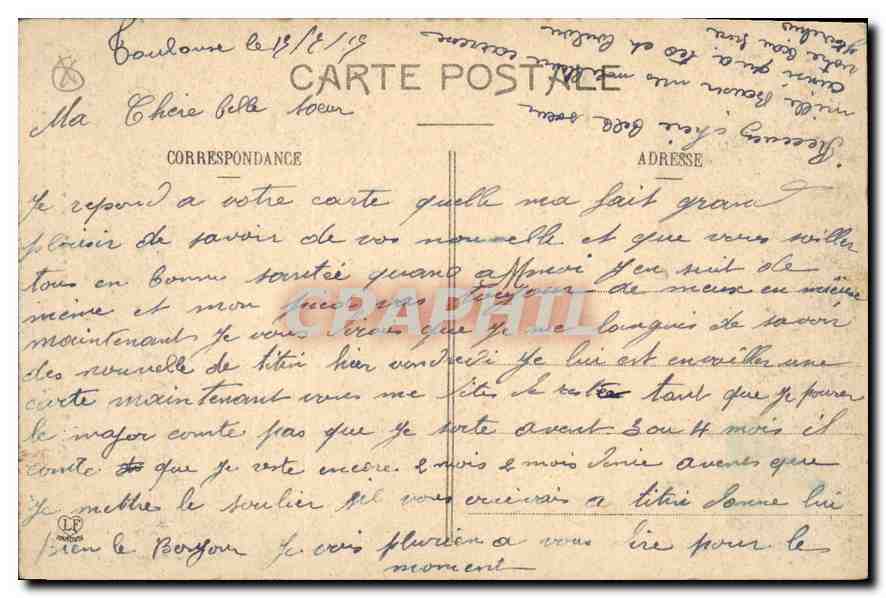 Toulouse le 19/7/19
CARTE POSTALE
Ma Chère belle sœur
CORRESPONDANCE
ADRESSE
Je repond a votre carte quelle ma fait grand
plaisir de savoir de vos nouvelle et que vous soiller
tous en bonne santée quand a moi J en suit de
même et mon pied vas toujour de meux en mieux
maintenant Je vous dirai que Je me languis de savoir
des nouvelle de titin hier vendredi Je lui est envoiller une
carte maintenant vous me dites de reste tant que Je pourer
le major comte pas que Je sorte avant 3 ou 4 mois il
comte que Je reste encore 2 mois 2 mois
Je mettre le soulier sil vous ecrivais a titin donne lui
LF
Bien le Bonjour Je vois plus rien a vous dire pour le
moment
Recevez chère belle sœur
mille Baiser mes
ainsi qua
votre
CPAPHIL